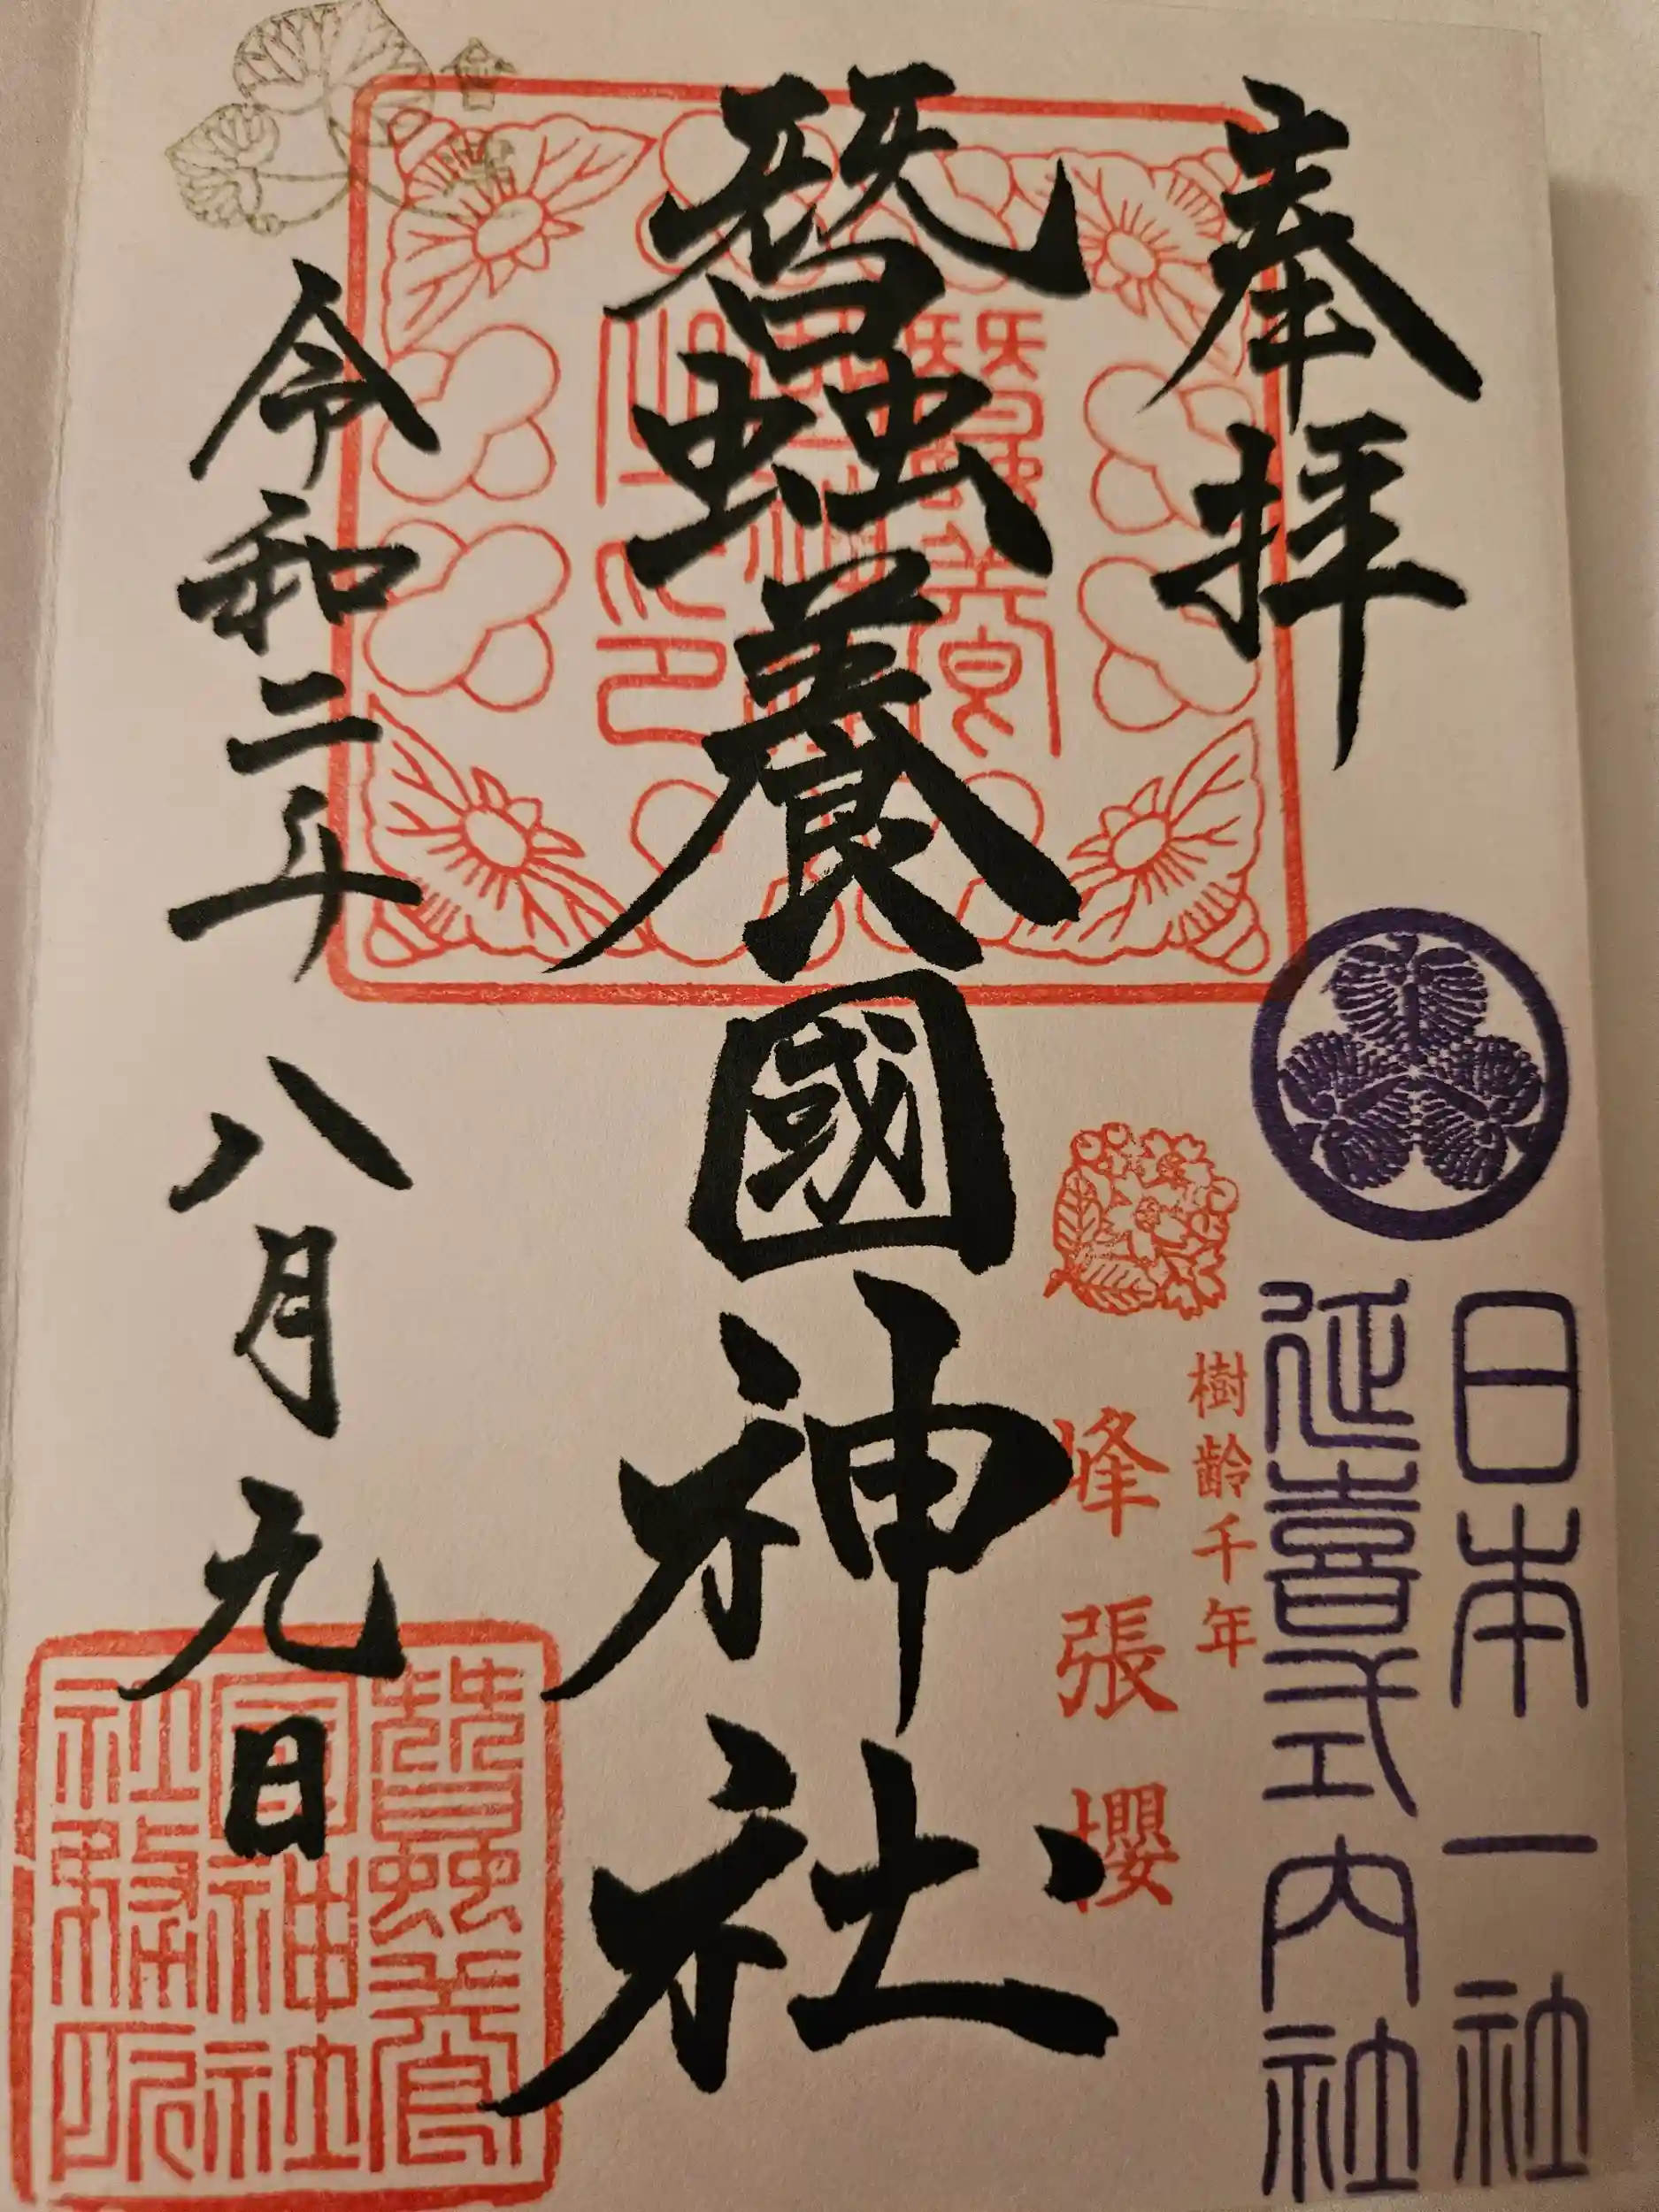 奉拝
日本一社
延喜式内社
樹齢千年
峰張櫻
蠶養國神社
会津
令和二年八月九日
蠶養國神社社務所